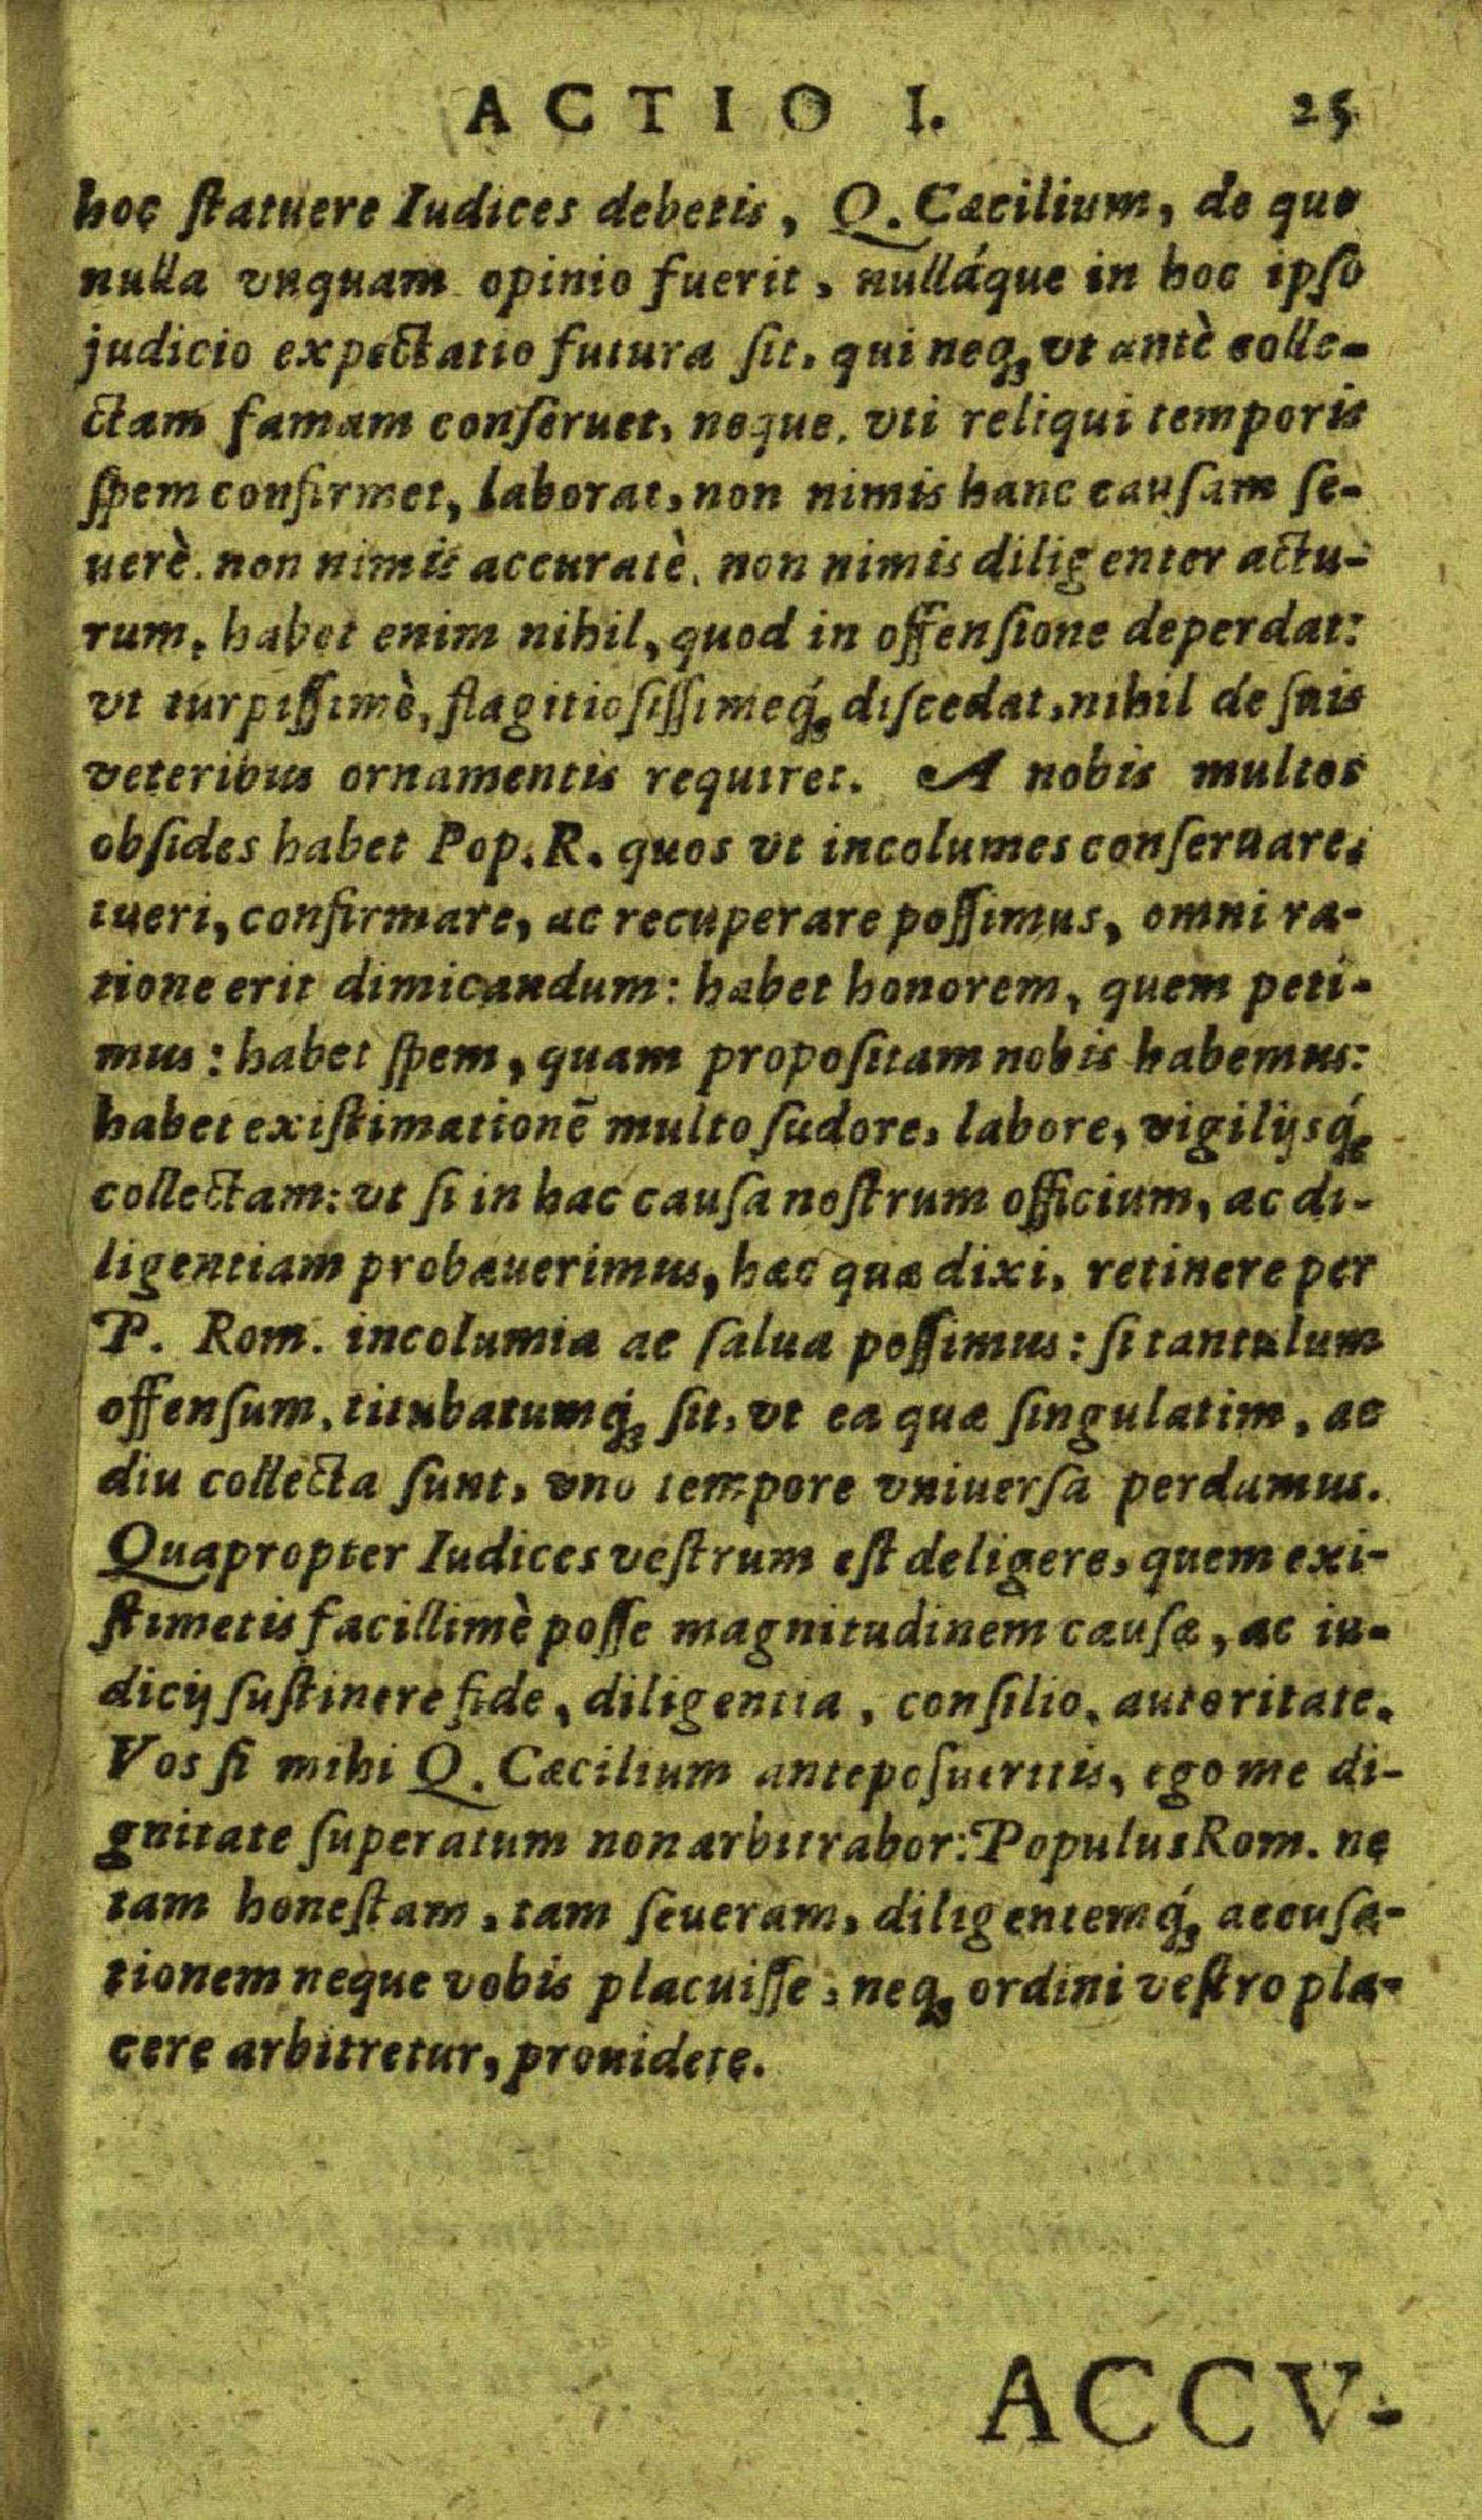 ACTIO I. 25
hoc ſtatuere Iudices debetis, Q. Cæcilium, de quo
nulla vnquam opinio fuerit, nulláque in hoc ipſo
judicio expectatio futura ſit, qui neq; vt antè colle-
ctam famam conſeruet, neque, vti reliqui temporis
ſpem confirmet, laborat, non nimis hanc cauſam ſe-
uerè, non nimis accuratè, non nimis diligenter actu-
rum. habet enim nihil, quod in offenſione deperdat:
vt turpiſſimè, flagitioſiſſimeq́; diſcedat, nihil de ſuis
veteribus ornamentis requiret. A nobis multos
obſides habet Pop. R. quos vt incolumes conſeruare,
tueri, confirmare, ac recuperare poſſimus, omni ra-
tione erit dimicandum: habet honorem, quem peti-
mus: habet ſpem, quam propoſitam nobis habemus:
habet exiſtimationē multo ſudore, labore, vigilijsq́;
collectam: vt ſi in hac cauſa noſtrum officium, ac di-
ligentiam probauerimus, hæc quæ dixi, retinere per
P. Rom. incolumia ac ſalua poſſimus: ſi tantulum
offenſum, titubatumq́; ſit, vt ea quæ ſingulatim, ac
diu collecta ſunt, vno tempore vniuerſa perdamus.
Quapropter Iudices veſtrum eſt deligere, quem exi-
ſtimetis facillimè poſſe magnitudinem cauſæ, ac iu-
dicij ſuſtinere fide, diligentia, conſilio, autoritate.
Vos ſi mihi Q. Cæcilium antepoſueritis, ego me di-
gnitate ſuperatum non arbitrabor: Populus Rom. ne
tam honeſtam, tam ſeueram, diligentemq́; accuſa-
tionem neque vobis placuiſſe, neq; ordini veſtro pla-
cere arbitretur, prouidete.
ACCV-